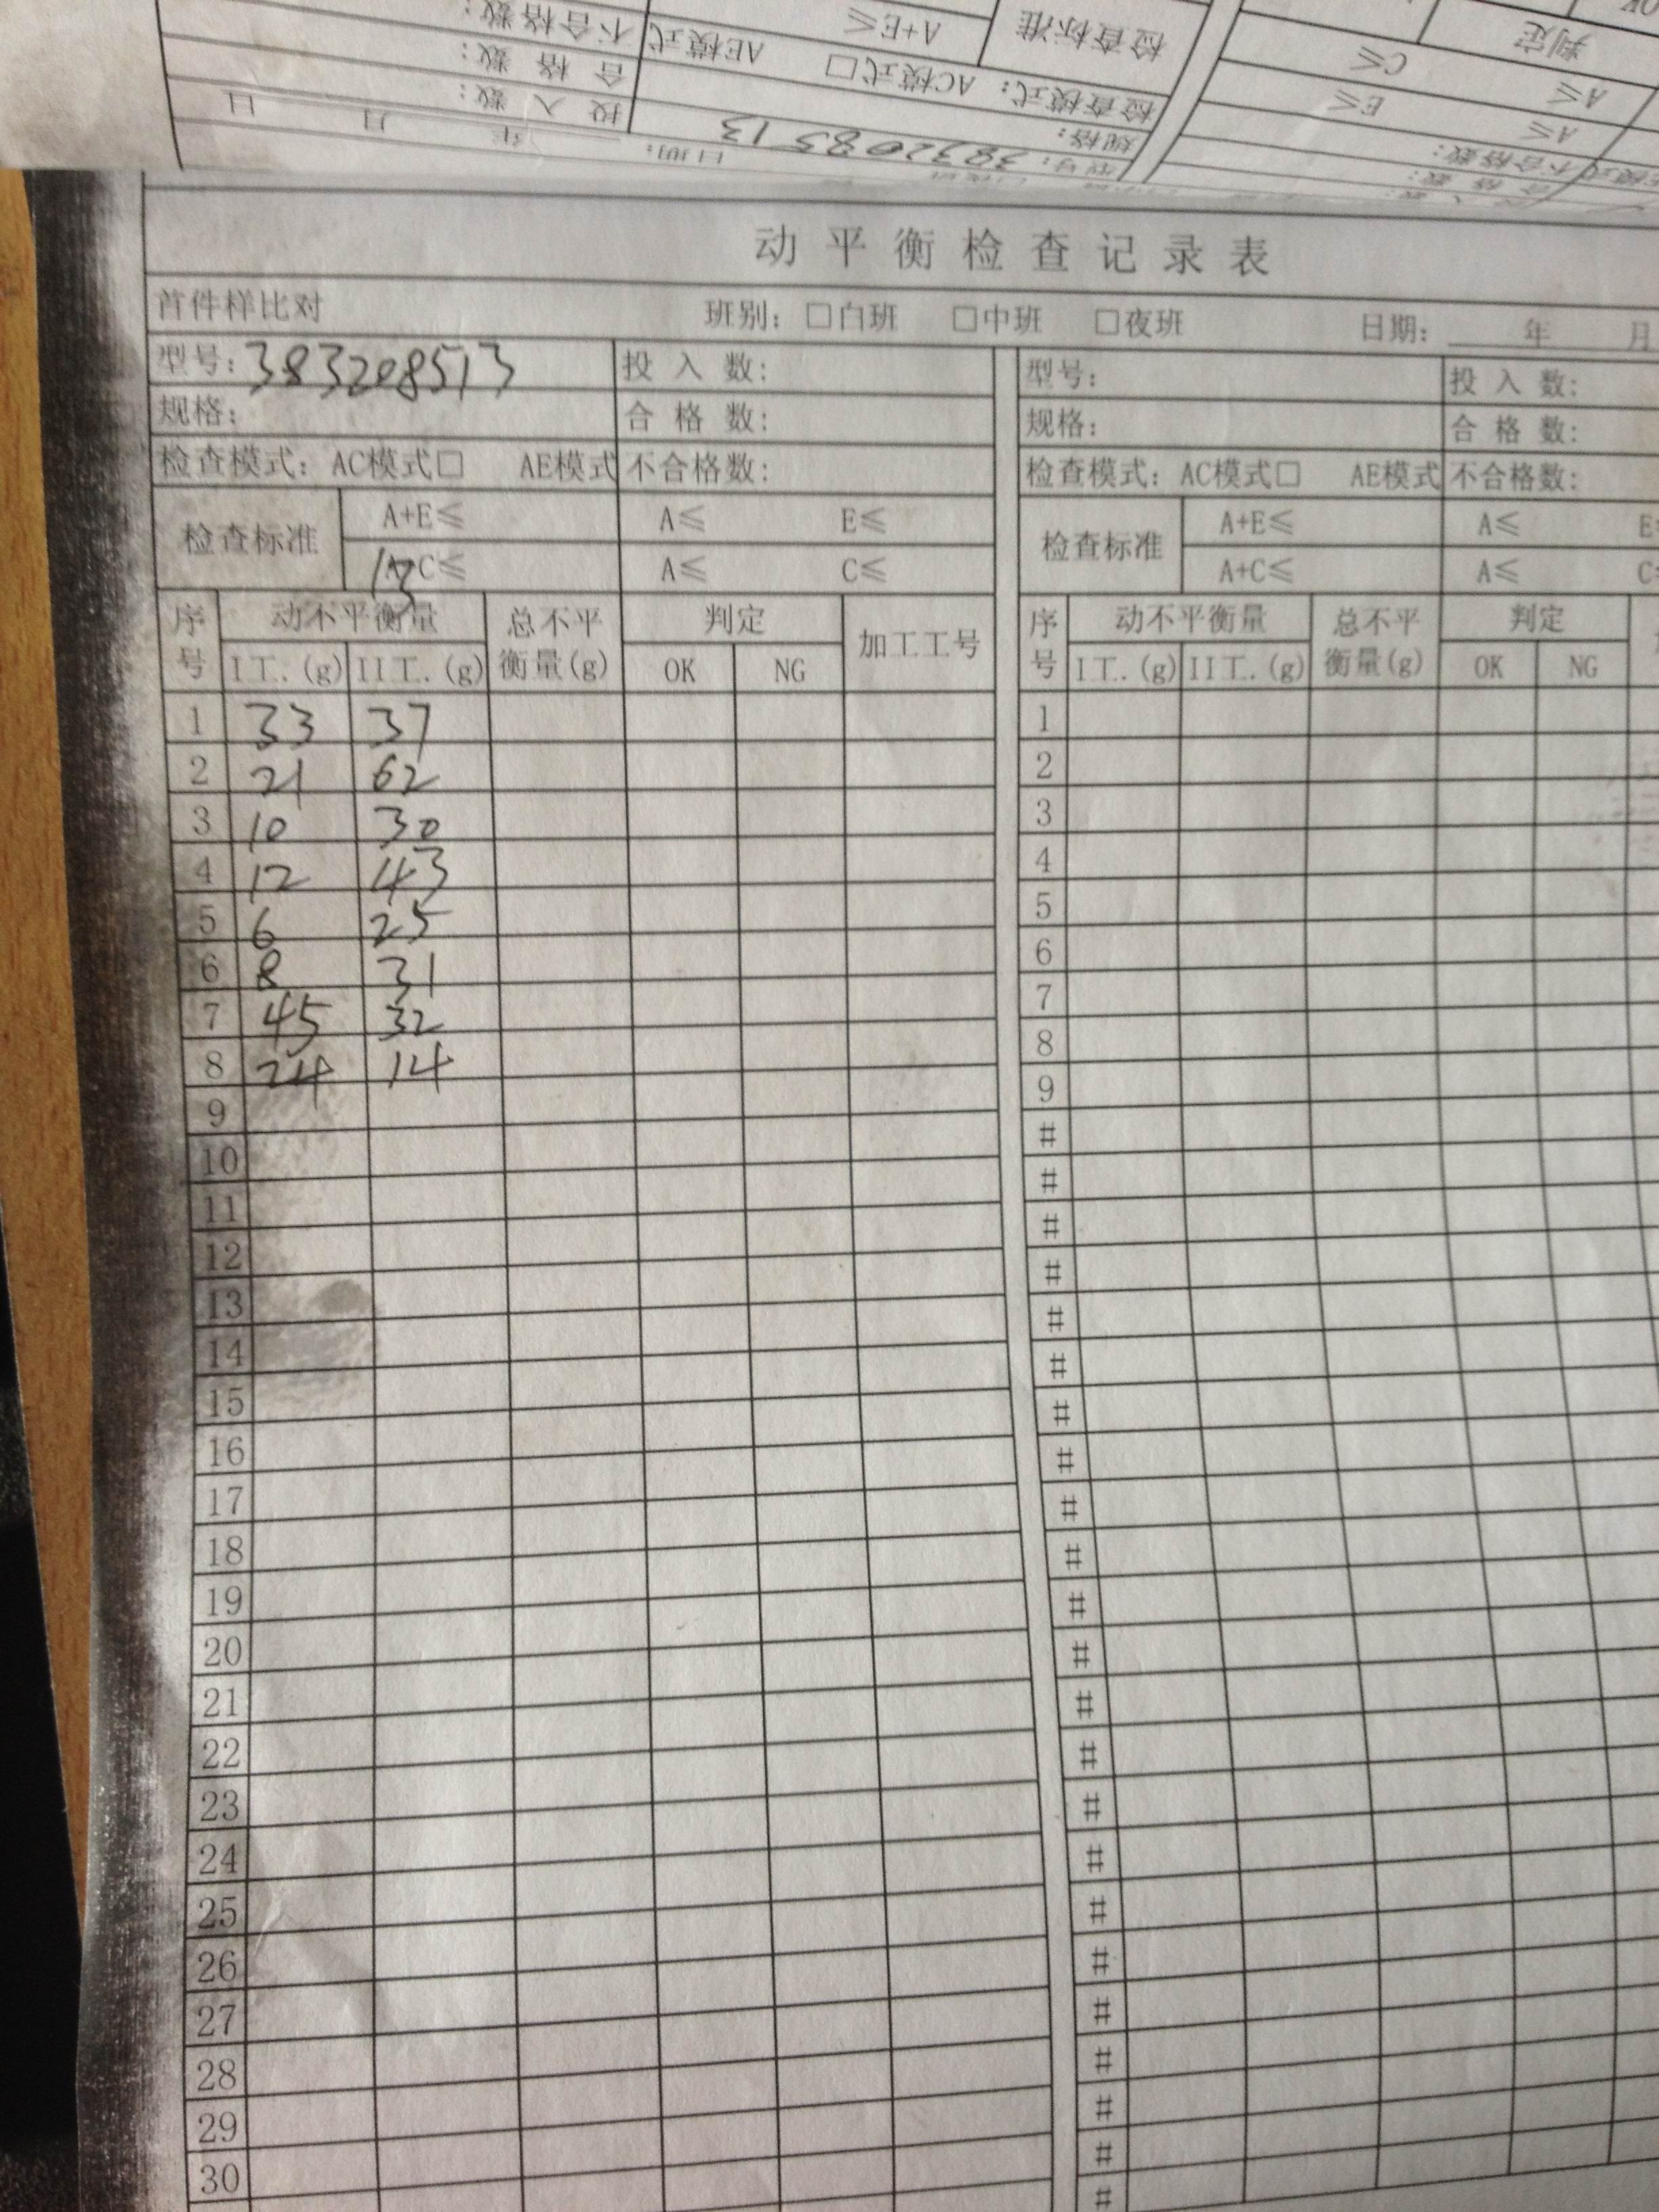 不合格数:
AE模式
A+E≤
检查标准
判定
C≤
合格数:
检查模式: AC模式□
A≤
E≤
投入数:
规格:
A≤
年 月 日
日期:
型号: 383208513
不合格数:
合格数:
动平衡检查记录表
首件样比对 班别: □白班 □中班 □夜班 日期: 年 月
型号: 383208513 投入数: 型号: 投入数:
规格: 合格数: 规格: 合格数:
检查模式: AC模式□ AE模式 不合格数: 检查模式: AC模式□ AE模式 不合格数:
检查标准 A+E≤ A≤ E≤ 检查标准 A+E≤ A≤ E
C≤ A≤ C≤ A+C≤ A≤ C
序号 动不平衡量 总不平衡量(g) 判定 加工工号 序号 动不平衡量 总不平衡量(g) 判定
I工.(g) II工.(g) OK NG I工.(g) II工.(g) OK NG
1 33 37 1
2 21 62 2
3 10 30 3
4 12 43 4
5 6 25 5
6 8 31 6
7 45 32 7
8 24 14 8
9 9
10 #
11 #
12 #
13 #
14 #
15 #
16 #
17 #
18 #
19 #
20 #
21 #
22 #
23 #
24 #
25 #
26 #
27 #
28 #
29 #
30 #
#
#
#